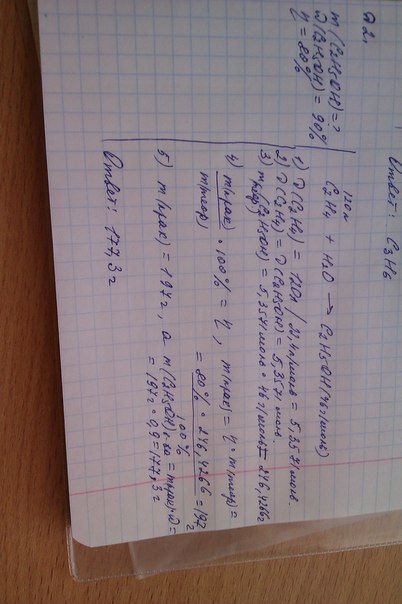 Ответ: C3H6
№2.
m (C2H5OH) = ?
ω (C2H5OH) = 90%
η = 80%
120л
C2H4 + H2O → C2H5OH (46 г/моль)
1) ν (C2H4) = 120л / 22,4л/моль = 5,3571 моль.
2) ν (C2H4) = ν (C2H5OH) = 5,3571 моль.
3) m (C2H5OH) = 5,3571 моль • 46 г/моль = 246,4266г
теор)
4) m(прак) • 100% = η, m(прак) = η • m(теор) =
m(теор) 100%
= 80% • 246,4266 = 197г
100%
5) m(прак) = 197г, а m(C2H5OH) = mпрак • ω =
= 197г • 0,9 = 177,3г
Ответ: 177,3г